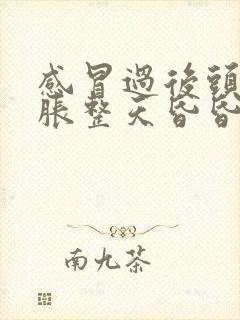 感冒過後頭
脹整天昏昏
南九茶